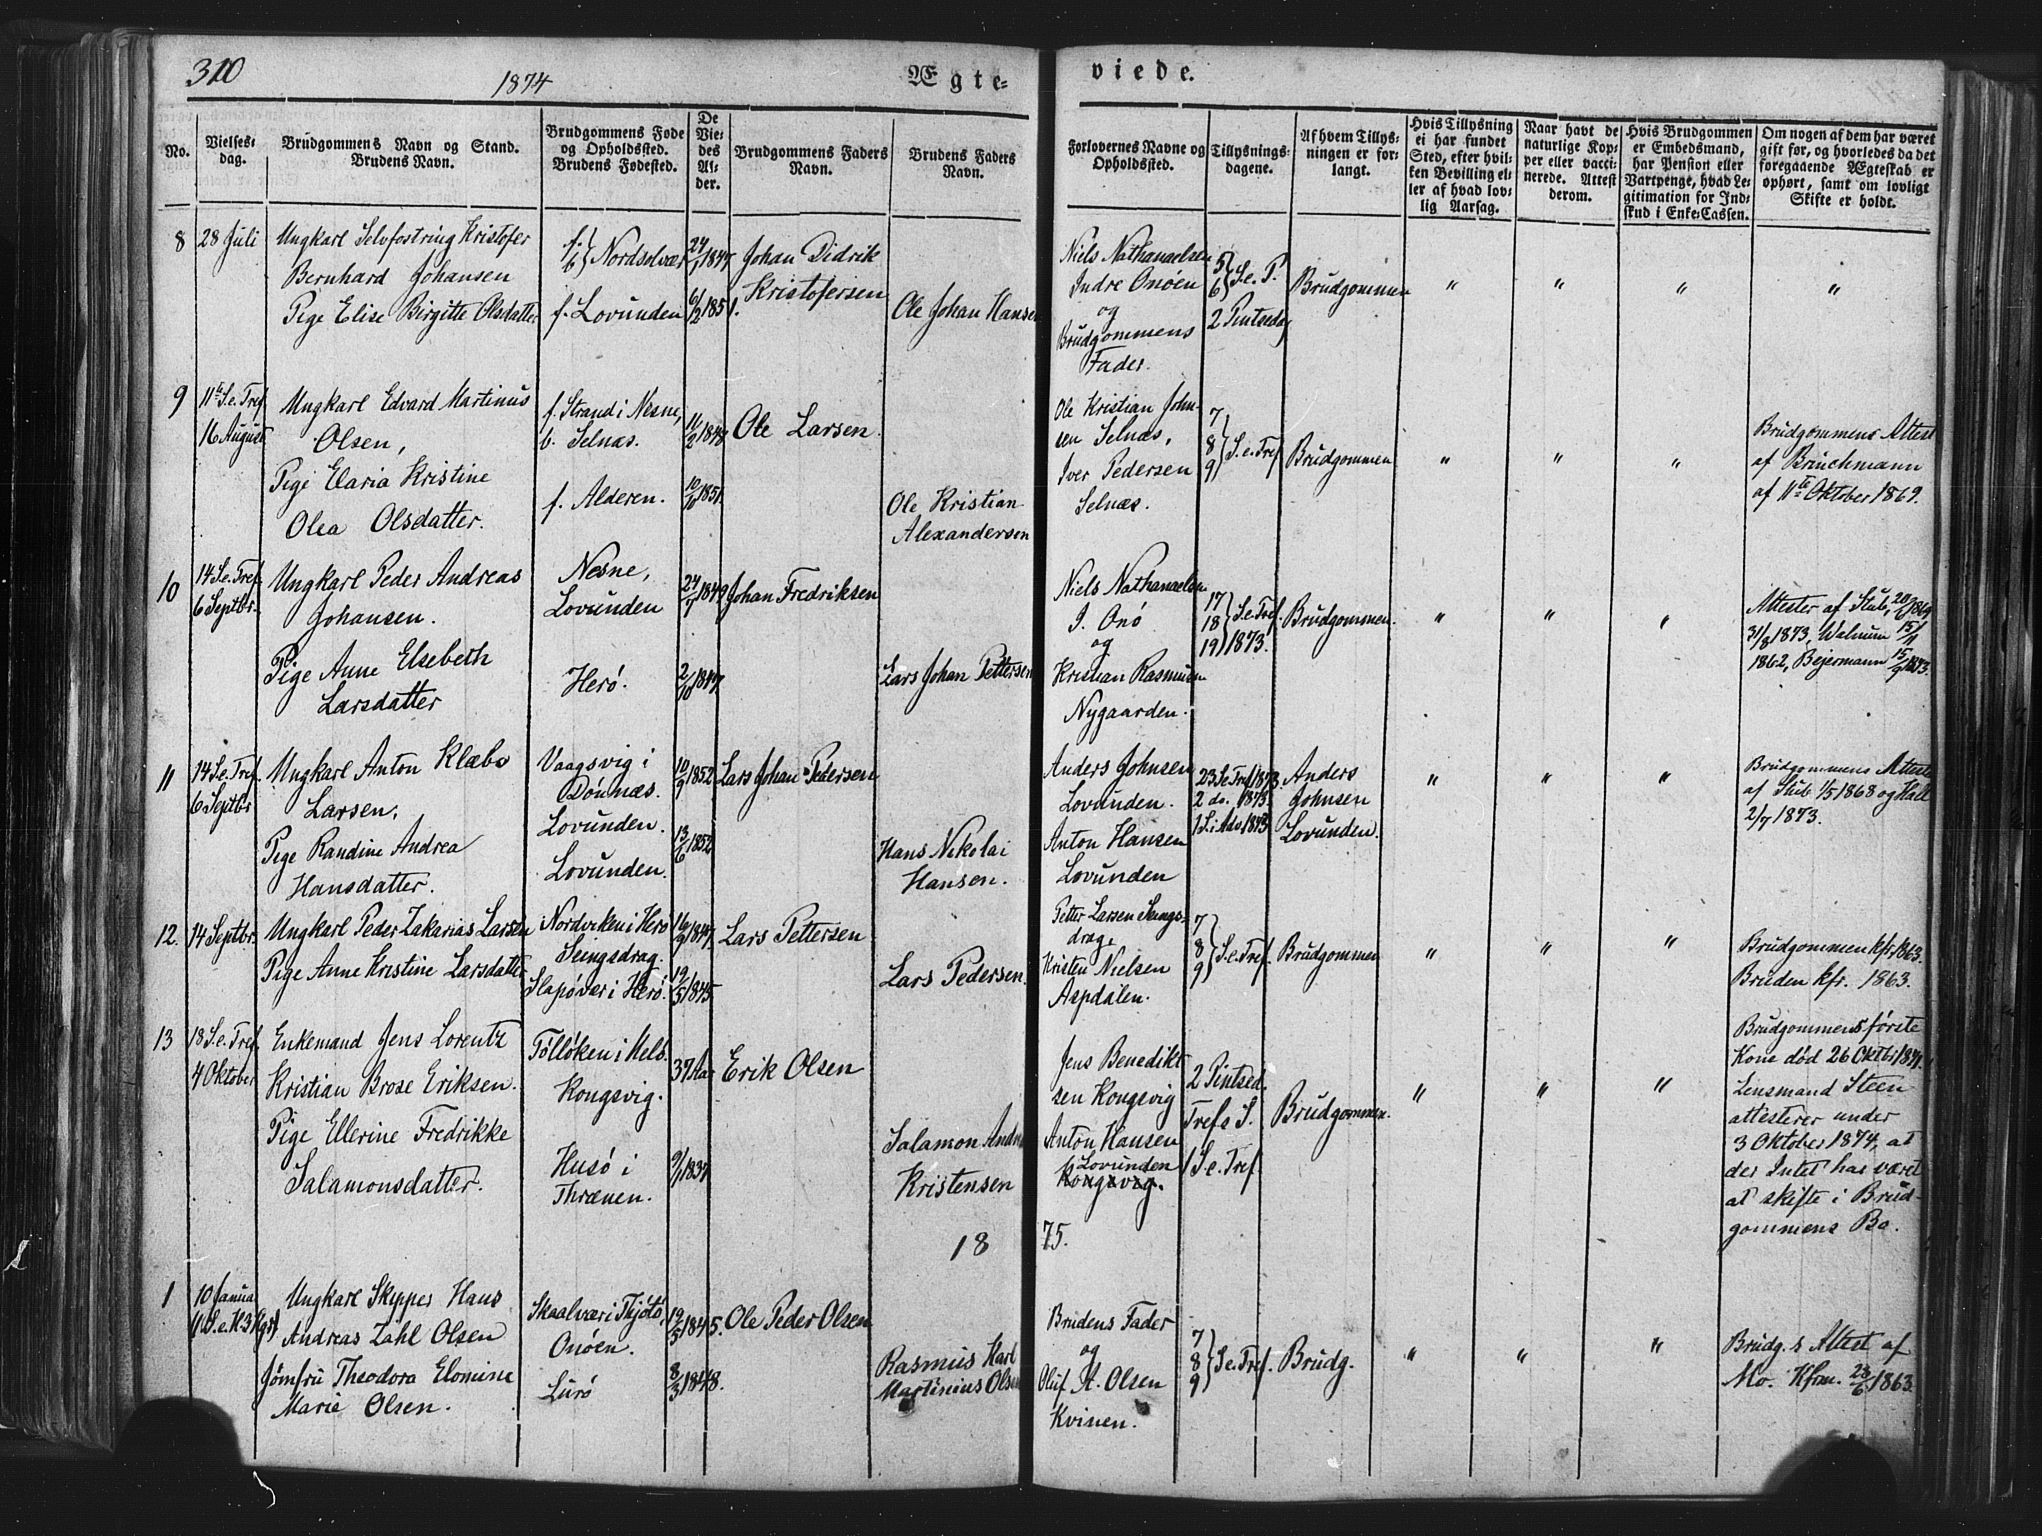 310
1874
Ægte-
viede.
No.
Vielses-
dag.
Brudgommens Navn og Stand.
Brudens Navn.
Brudgommens Føde
og Opholdsted.
Brudens Fødested.
De
Vie-
des
Al-
der.
Brudgommens Faders
Navn.
Brudens Faders
Navn.
Forlovernes Navne og
Opholdssted.
Tillysnings-
dagene.
Af hvem Tillys-
ningen er for-
langt.
Hvis Tillysning
ei har fundet
Sted, efter hvil-
ken Bevilling el-
ler af hvad lov-
lig Aarsag.
Naar havt de
naturlige Kop-
per eller vacci-
nerede. Attest
derom.
Hvis Brudgommen
er Embedsmand,
har Pension eller
Vartpenge, hvad Le-
gitimation for Ind-
skud i Enke-Cassen.
Om nogen af dem har været
gift før, og hvorledes da det
foregaaende Ægteskab er
ophørt, samt om lovligt
Skifte er holdt.
8
28 Juli
Ungkarl Selvfostring Kristofer
Bernhard Johansen
Pige Elise Birgitte Olsdatter
f.
b. } Nordsolvær
f. Lovunden
24/1 1847
6/2 1851.
Johan Didrik
Kristofersen
Ole Johan Hansen
Niels Nathanaelsen
Indre Onøen
og
Brudgommens
Fader.
5
6 } S. e. P.
2 Pintsedag
Brudgommen
" " " "
9
11te S. e. Tref.
16 August
Ungkarl Edvard Martinus
Olsen,
Pige Elaria Kristine
Olea Olsdatter.
f. Strand i Nesne,
b. Selnæs.
f. Alderen.
11/2 1848
10/10 1851
Ole Larsen
Ole Kristian
Alexandersen
Ole Kristian John-
sen Selnæs,
Iver Pedersen
Selnæs.
7
8
9 } S. e. Tref
Brudgommen
" " "
Brudgommens Attest
af Bruchmann
af 11te Oktober 1869.
10
14 S. e. Tref.
6 Septbr.
Ungkarl Peder Andreas
Johansen.
Pige Anne Elsebeth
Larsdatter
Nesne,
Lovunden
Herø.
24/7 1849
2/10 1847
Johan Fredriksen
Lars Johan Pettersen
Niels Nathanaelsen
I. Onø
og
Kristian Rasmusen
Nygaarden.
17
18
19 } S. e. Tref
1873.
Brudgommen.
" " "
Attester af Stub,
31/8 1873, Walnum 15/1
1862, Bejermann 15/9 1873.
11
14 S. e. Tref.
6 Septbr
Ungkarl Anton Klæbo
Larsen.
Pige Randine Andrea
Hansdatter.
Vaagsvig i
Dønnæs.
Lovunden.
Lovunden.
10/9 1852
13/6 1852
Lars Johan Pedersen
Hans Nikolai
Hansen.
Anders Johnsen
Lovunden.
Anton Hansen
Lovunden
23 S. e. Tref 1873.
2 do. 1873.
1 S. i Adv 1873
Anders
Johnsen
Lovunden.
" " "
Brudgommens Attest
af Stub 1/5 1868 og Hall
2/7 1873.
12.
14 Septbr.
Ungkarl Peder Zakarias Larsen
Pige Anne Kristine Larsdatter
Nordviken i Herø
Seingsdrag.
Slapøvær i Herø.
16/9 1847.
19/5 1845
Lars Pettersen
Lars Pedersen.
Petter Larsen Seings-
drag,
Kristen Nielsen
Aspdalen.
7
8
9 } S. e. Tref.
Brudgommen
" " "
Brudgommen kfr. 1863.
Bruden kfr. 1863.
13
18 S. e. Tref.
4 Oktober
Enkemand Jens Lorentz
Kristian Brose Eriksen.
Pige Ellerine Fredrikke
Salamonsdatter.
Tølløken i Mels.
Kongsvig.
Husø i
Thrænen.
37 Aar
9/1 1837
Erik Olsen
Salamon Andr
Kristensen
Jens Benedikt
sen Kongsvig
Anton Hansen
Lovunden
Kongsvig.
2 Pintsed.
Trefs S.
1 S. e. Tref.
Brudgommen.
" " "
Brudgommens første
Kone død 26 Oktbr 1871.
Lensmand Steen
attesterer under
3 Oktober 1874, at
der Intet har været
at skifte i Brud-
gommens Bo.
18 75.
1
10 Januar
1 S. e. H. 3 Kgr)
Ungkarl Skipper Hans
Andreas Zahl Olsen
Jomfru Theodora Elonine
Marie Olsen.
Skaalvær i Thjøtø,
Onøen.
Lurø
19/5 1845.
8/3 1848.
Ole Peder Olsen
Rasmus Karl
Martinius Olsen
Brudens Fader
og
Oluf A. Olsen
Kvinen.
7
8
9 } S. e. Tref.
Brudg.
" " "
Brudg.s Attest af
Mo. Kfrm. 28/6 1863.